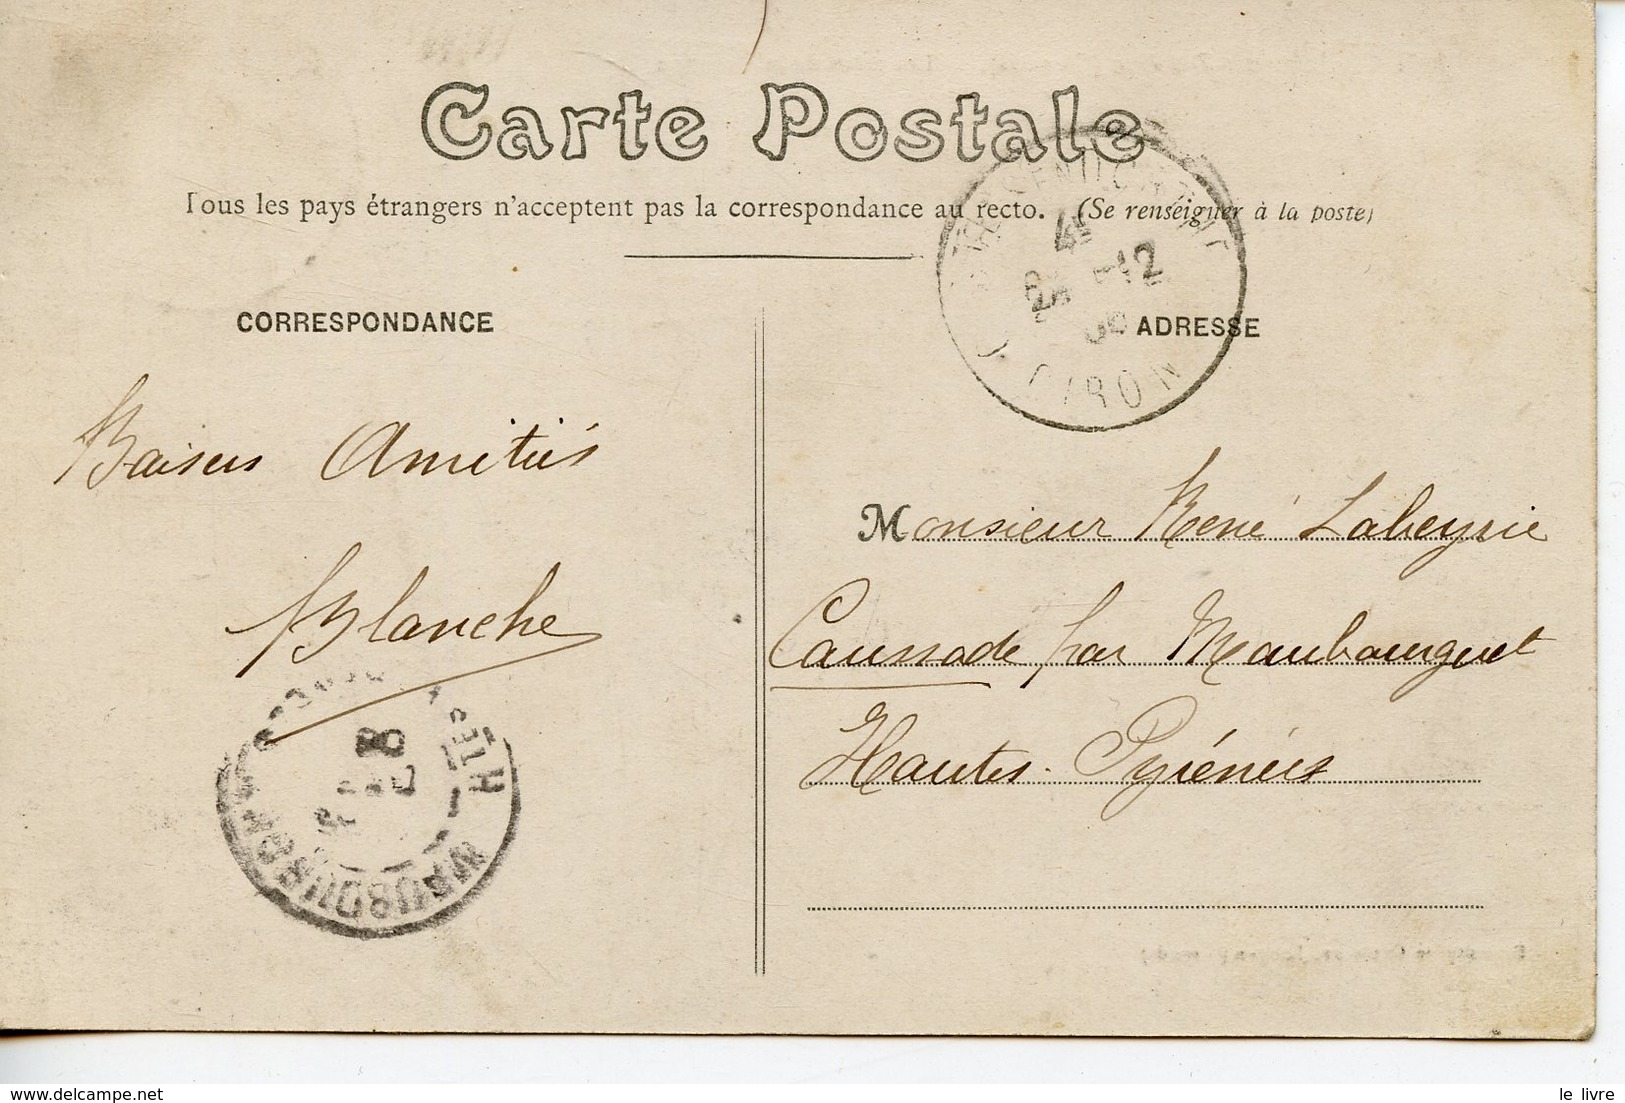 Carte Postale
Tous les pays étrangers n'acceptent pas la correspondance au recto. (Se renseigner à la poste)
CORRESPONDANCE
ADRESSE
Baisers Amitiés
Blanche
Monsieur René Labeyrie
Caussade par Maubourguet
Hautes-Pyrénées
4E
12
GIRON
MAUBOURGUET
le livre